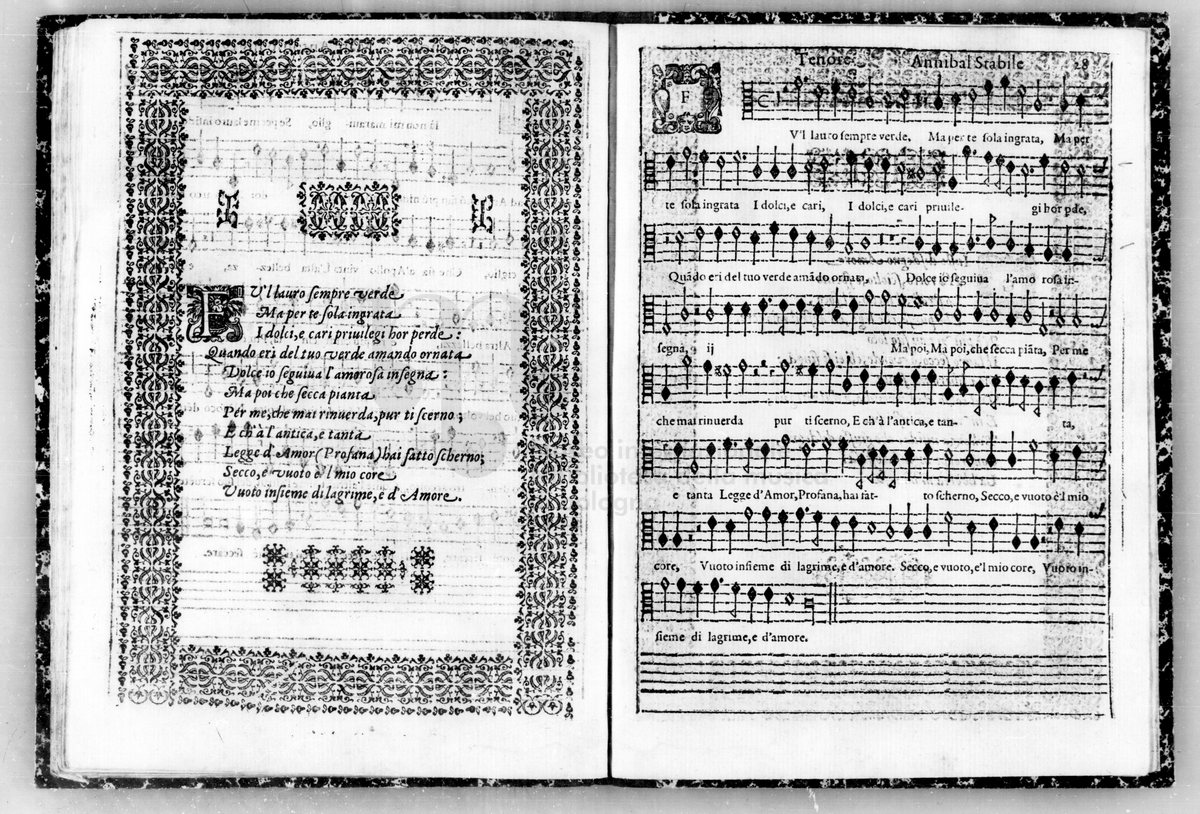 FV'l lauro sempre verde
Ma per te sola ingrata
I dolci, e cari priuilegi hor perde:
Quando eri del tuo verde amando ornata
Dolce io seguiua l'amorosa insegna:
Ma poi che secca pianta
Per me, che mai rinuerda, pur ti scerno;
E ch'à l'antica, e tanta
Legge d'Amor (Profana) hai fatto scherno;
Secco, e vuoto è'l mio core
Vuoto insieme di lagrime, e d'Amore.
Tenore Annibal Stabile 28
FV'l lauro sempre verde, Ma per te sola ingrata, Ma per
te sola ingrata I dolci, e cari, I dolci, e cari priuile- gi hor pde,
Quãdo eri del tuo verde amãdo ornata, Dolce io seguiua l'amo rosa in-
segna, ij Ma poi, Ma poi, che secca piãta, Per me
che mai rinuerda pur ti scerno, E ch'à l'antica, e tan- ta,
e tanta Legge d'Amor, Profana, hai fat- to scherno, Secco, e vuoto è'l mio
core, Vuoto insieme di lagrime, e d'amore. Secco, e vuoto, e'l mio core, Vuoto in-
sieme di lagrime, e d'amore.